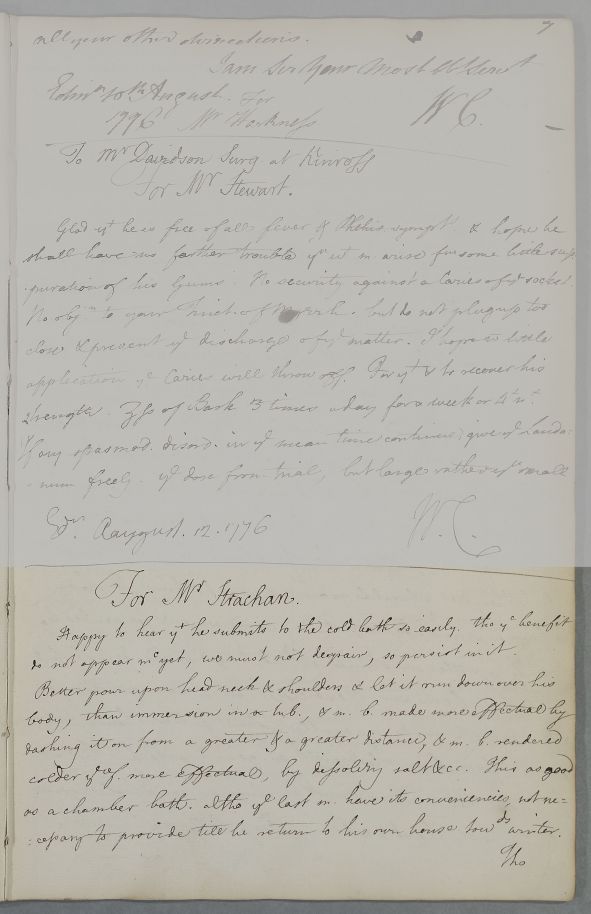 all your other directions.
I am Sir Your Most Ob Servt
Edinr 10th August. For
1776 Mr Harkness
W C.
7
To Mr Davidson Surg at Kinross
For Mr Stewart.
Glad yt he is free of all fever & Phthis. sympt. & hope he
shall have no farther trouble yn wt m. arise from some little sup
puration of his Gums. No security against a Caries of ye socket.
No obj. to your Tinct. of Myrrh. but do not plug up too
close & prevent ye discharge of ye matter. I hope wt little
application ye Caries will throw off. For yt & to recover his
strength. ʒss of Bark 3 times a day for a week or 4t nt.
If any spasmod. disord. in ye mean time continue, give ye Lauda-
-num freely. ye dose from trial, but large rather yn small
Edr. August. 12. 1776
W. C.
For Mr Strachan.
Happy to hear yt he submits to the cold bath so easily. tho ye benefit
do not appear mc yet, we must not despair, so persist in it.
Better pour upon head neck & shoulders & let it run down over his
body, than immersion in a tub, & m. b. made more effectual by
dashing it on from a greater & a greater distance, & m. b. rendered
colder & yrf. more effectual, by dissolving salt &c. This as good
as a chamber bath. altho ye last m. have its conveniencies, not ne=
:cessary to provide till he return to his own house towds winter.
Tho